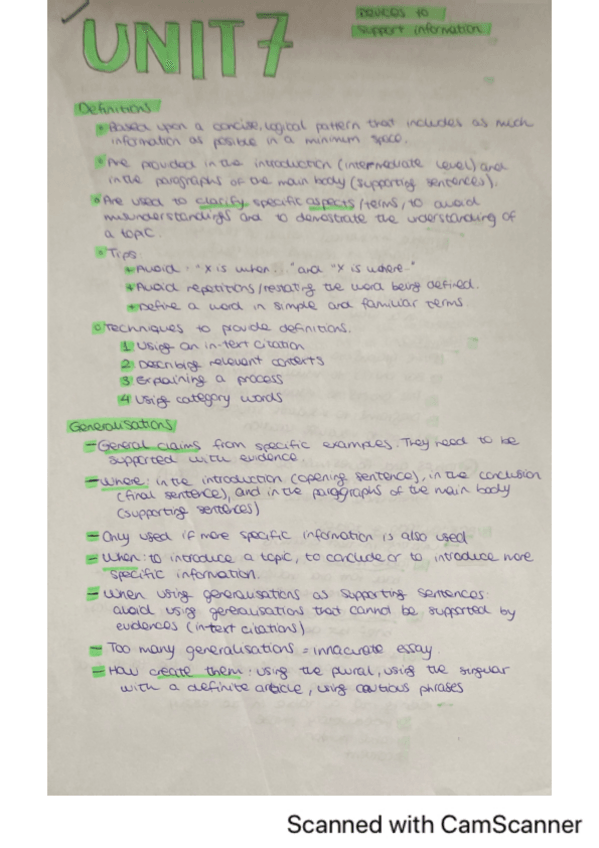 UNIT 7
Devices to
support information
Definitions
Based upon a concise, logical pattern that includes as much
information as posible in a minimum space.
Are provided in the introduction (intermediate level) and
in the paragraphs of the main body (supporting sentences).
Are used to clarify specific aspects/terms, to avoid
misunderstandings and to demostrate the understanding of
a topic.
Tips
Avoid: "X is when..." and "X is where."
Avoid repetitions/restating the word being defined.
Define a word in simple and familiar terms
Techniques to provide definitions.
1 Using an in-text citation
2 Describing relevant contexts
3 Explaining a process
4 Using category words
Generalisations
- General claims from specific examples. They need to be
supported with evidence.
- Where: in the introduction (opening sentence), in the conclusion
(final sentence), and in the paragraphs of the main body
(supporting sentences)
- Only used if more specific information is also used
- When: to introduce a topic, to conclude or to introduce more
specific information.
- When using generalisations as supporting sentences:
avoid using generalisations that cannot be supported by
evidences (in-text citations)
- Too many generalisations = innacurate essay.
- How create them: using the plural, using the singular
with a definite article, using cautious phrases
Scanned with CamScanner